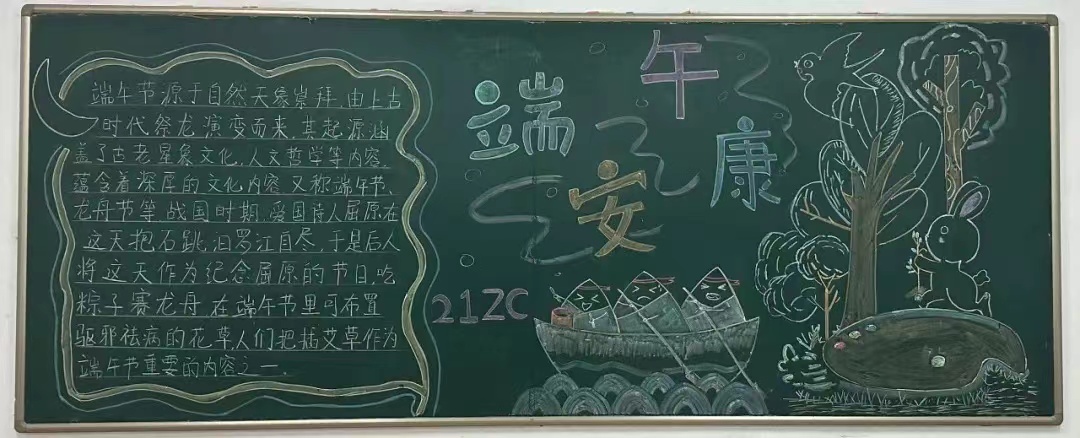 端午节源于自然天象崇拜,由上古
时代祭龙演变而来.其起源涵
盖了古老星象文化.人文哲学等内容.
蕴含着深厚的文化内容.又称端午节、
龙舟节等.战国时期.爱国诗人屈原在
这天抱石跳汨罗江自尽.于是后人
将这天作为纪念屈原的节日.吃
粽子赛龙舟.在端午节里可布置
驱邪祛病的花草人们把插艾草作为
端午节重要的内容之一.
端午安康
212C